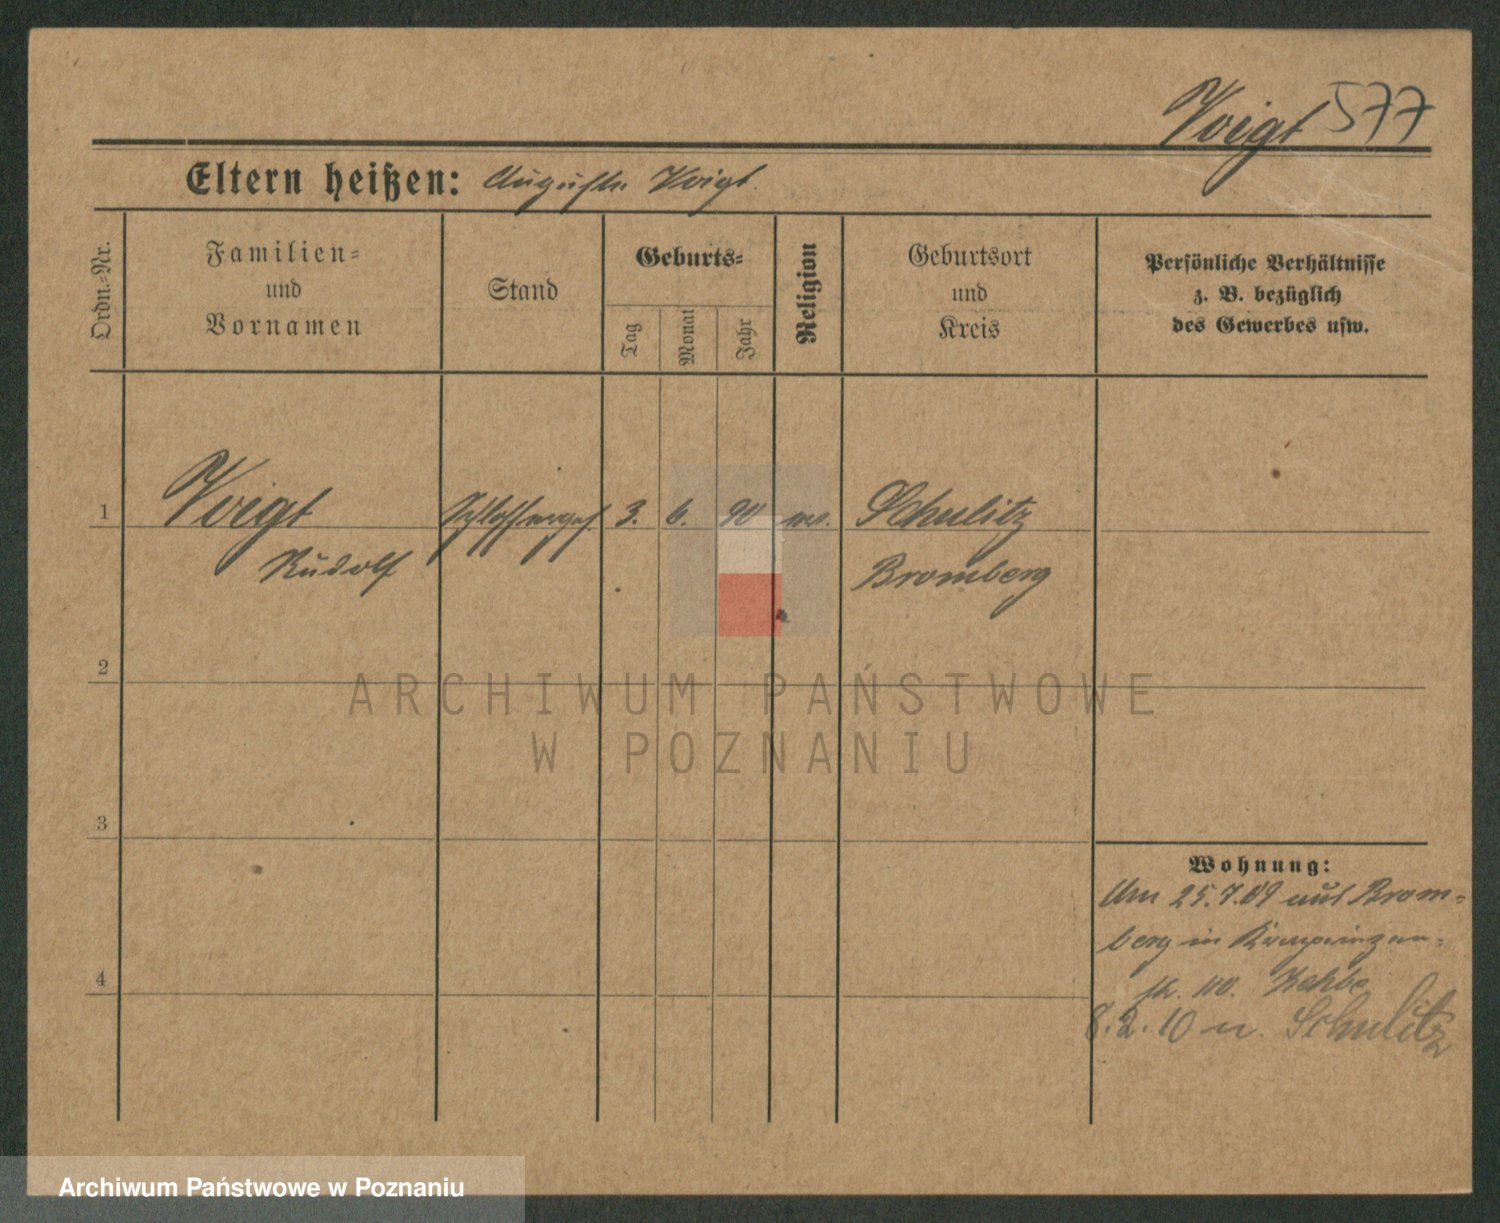 Voigt 577
Eltern heißen: Auguste Voigt.
Ordn.=Nr.
Familien=
und
Vornamen
Stand
Geburts=
Tag
Monat
Jahr
Religion
Geburtsort
und
Kreis
Persönliche Verhältnisse
z. B. bezüglich
des Gewerbes usw.
1 Voigt Schlosserges. 3. 6. 90 Schulitz
Rudolf Bromberg
2
ARCHIWUM PAŃSTWOWE
W POZNANIU
3
Wohnung:
Am 25.7.09 aus Brom=
berg in
4
8.2.10 n. Schulitz
Archiwum Państwowe w Poznaniu